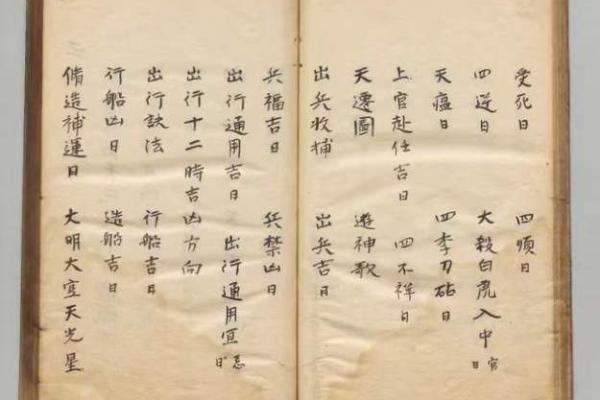 受死日 四順日
四逆日 大殺白虎入中宮日
天瘟日 四季刀砧日
上官赴任吉日 四不祥日
天遷圖 遊神歌
出兵收捕 出兵吉日
兵福吉日 兵禁凶日
出行通用吉日 出行通用宜忌日
出行十二時吉凶方向
出行訣法 行船吉日
行船凶日 造船吉日
脩造補運日 大明大空天光星